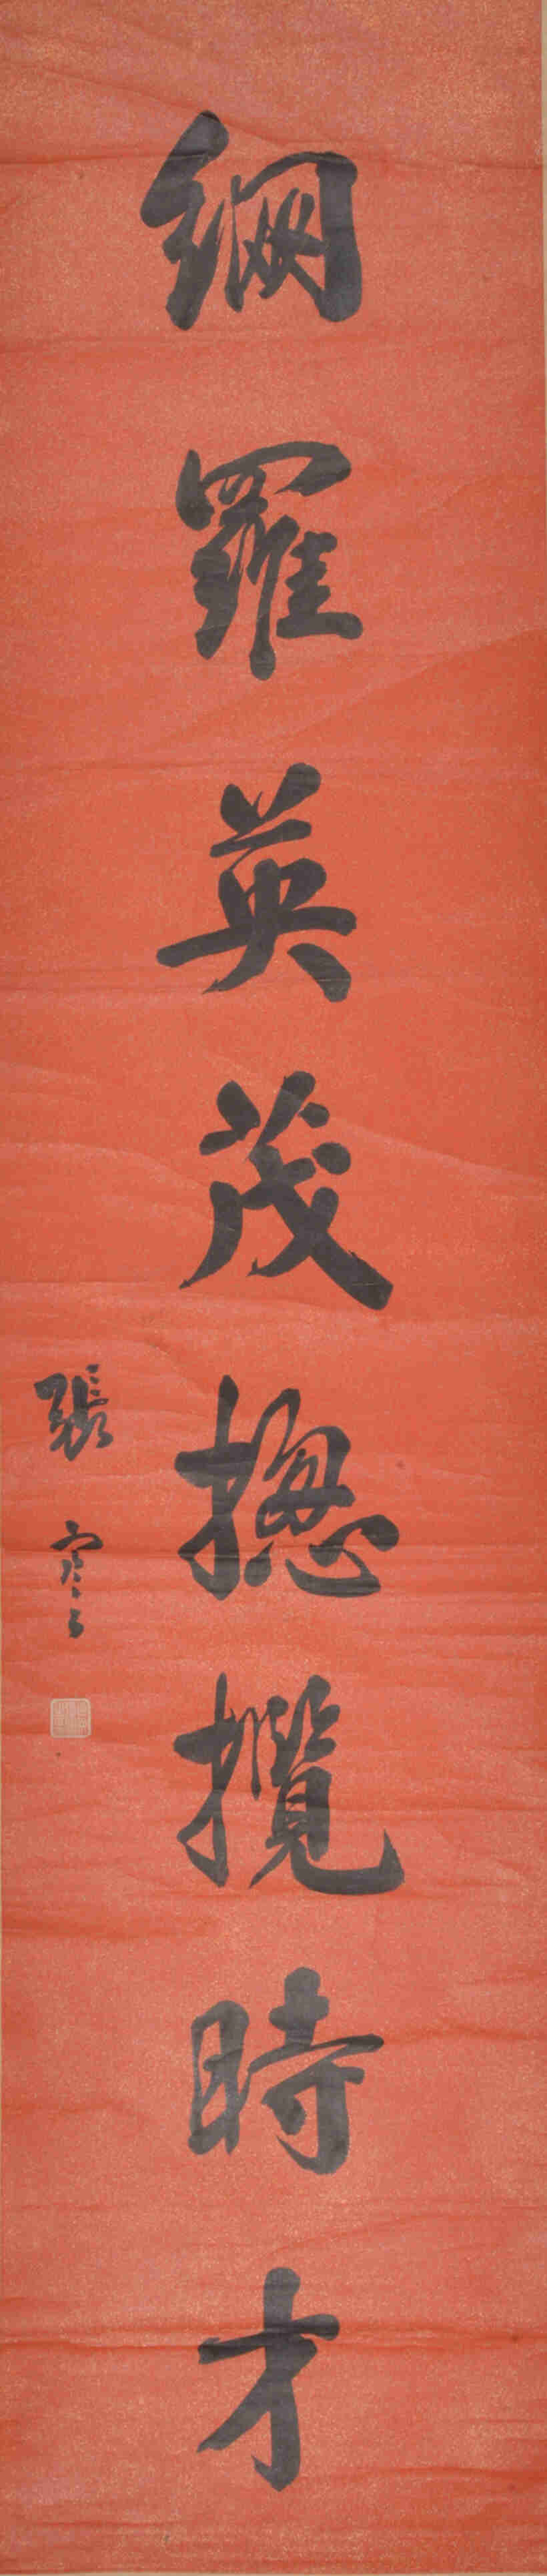 網羅英茂揔攬時才
張謇